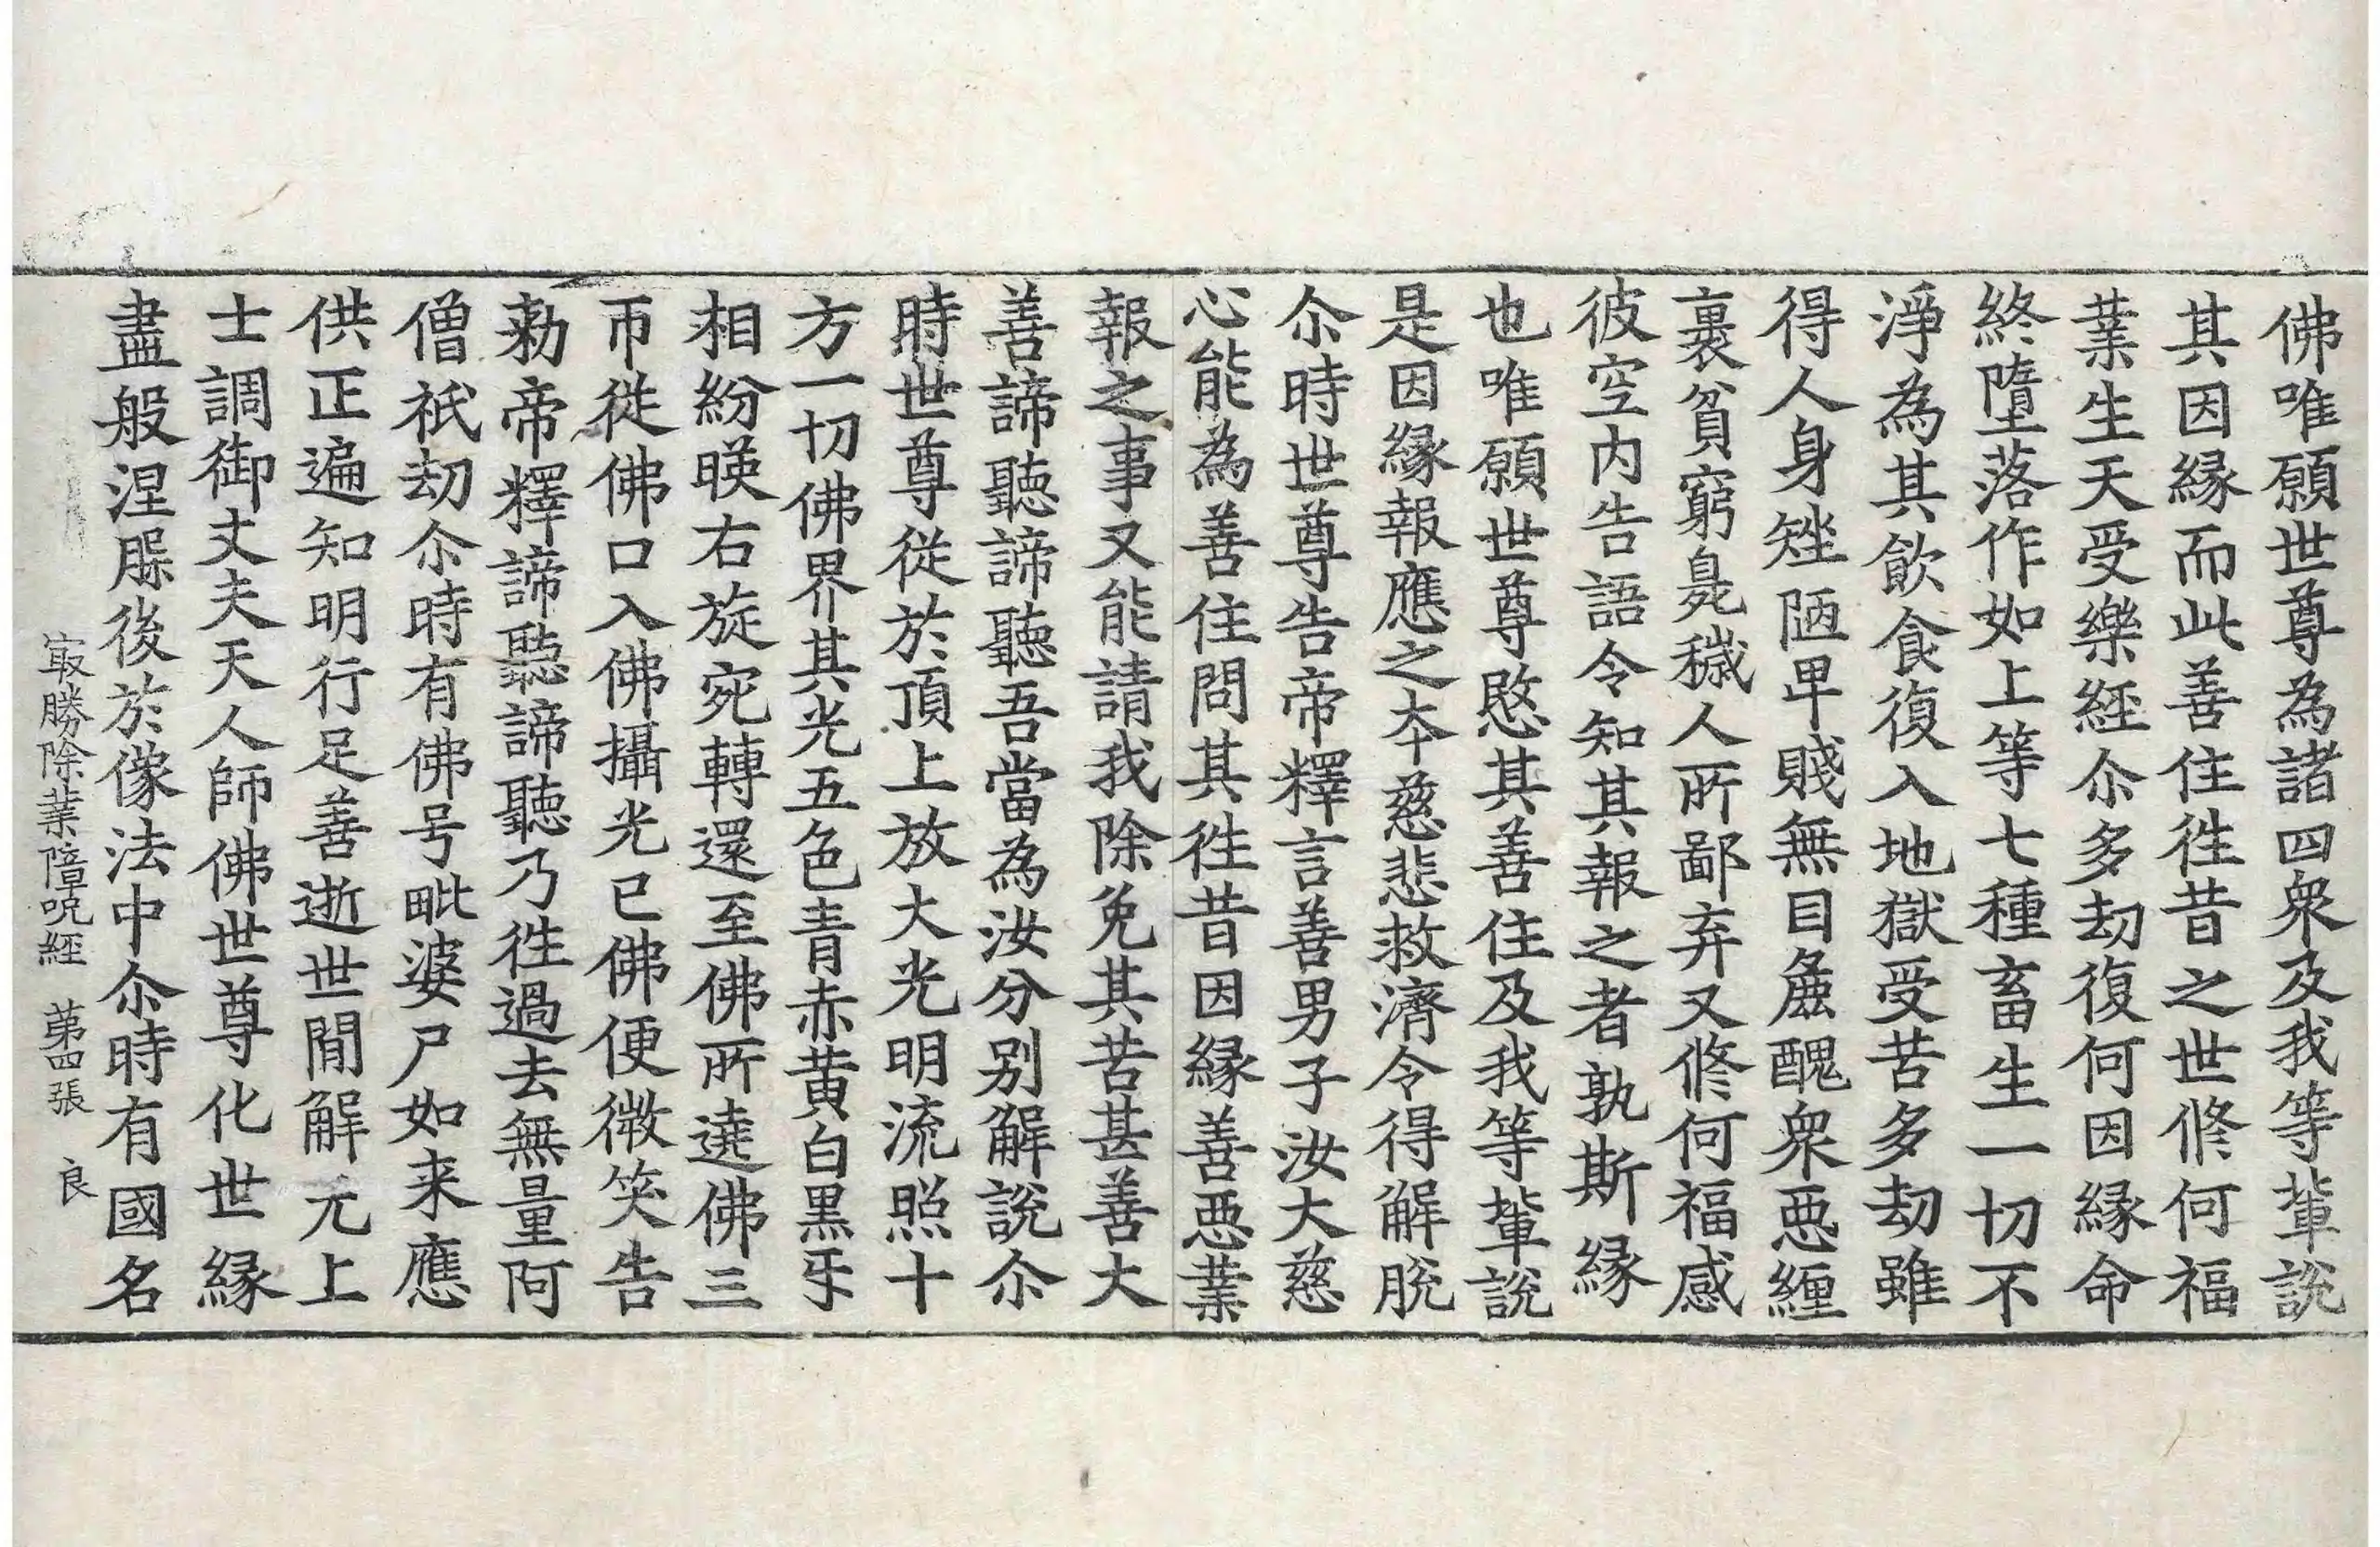 佛唯願世尊為諸四衆及我等輩說
其因縁而此善住徃昔之世脩何福
業生天受樂經尒多劫復何因縁命
終墮落作如上等七種畜生一切不
淨為其飲食復入地獄受苦多劫雖
得人身矬陋卑賤無目麁醜衆惡纏
裹貧窮臰穢人所鄙弃又脩何福感
彼空内告語令知其報之者孰斯縁
也唯願世尊愍其善住及我等輩說
是因縁報應之夲慈悲救濟令得解脫
尒時世尊告帝釋言善男子汝大慈
心能為善住問其徃昔因縁善惡業
報之事又能請我除免其苦甚善大
善諦聽諦聽吾當為汝分别解說尒
時世尊從於頂上放大光明流照十
方一切佛界其光五色青赤黄白黒㸦
相紛暎右旋宛轉還至佛所遶佛三
帀從佛口入佛攝光已佛便微笑告
勑帝釋諦聽諦聽乃徃過去無量阿
僧祇劫尒時有佛号毗婆尸如来應
供正遍知明行足善逝世閒解无上
士調御丈夫天人師佛世尊化世縁
盡般涅槃後於像法中尒時有國名
冣勝除業障呪經　苐四張　良